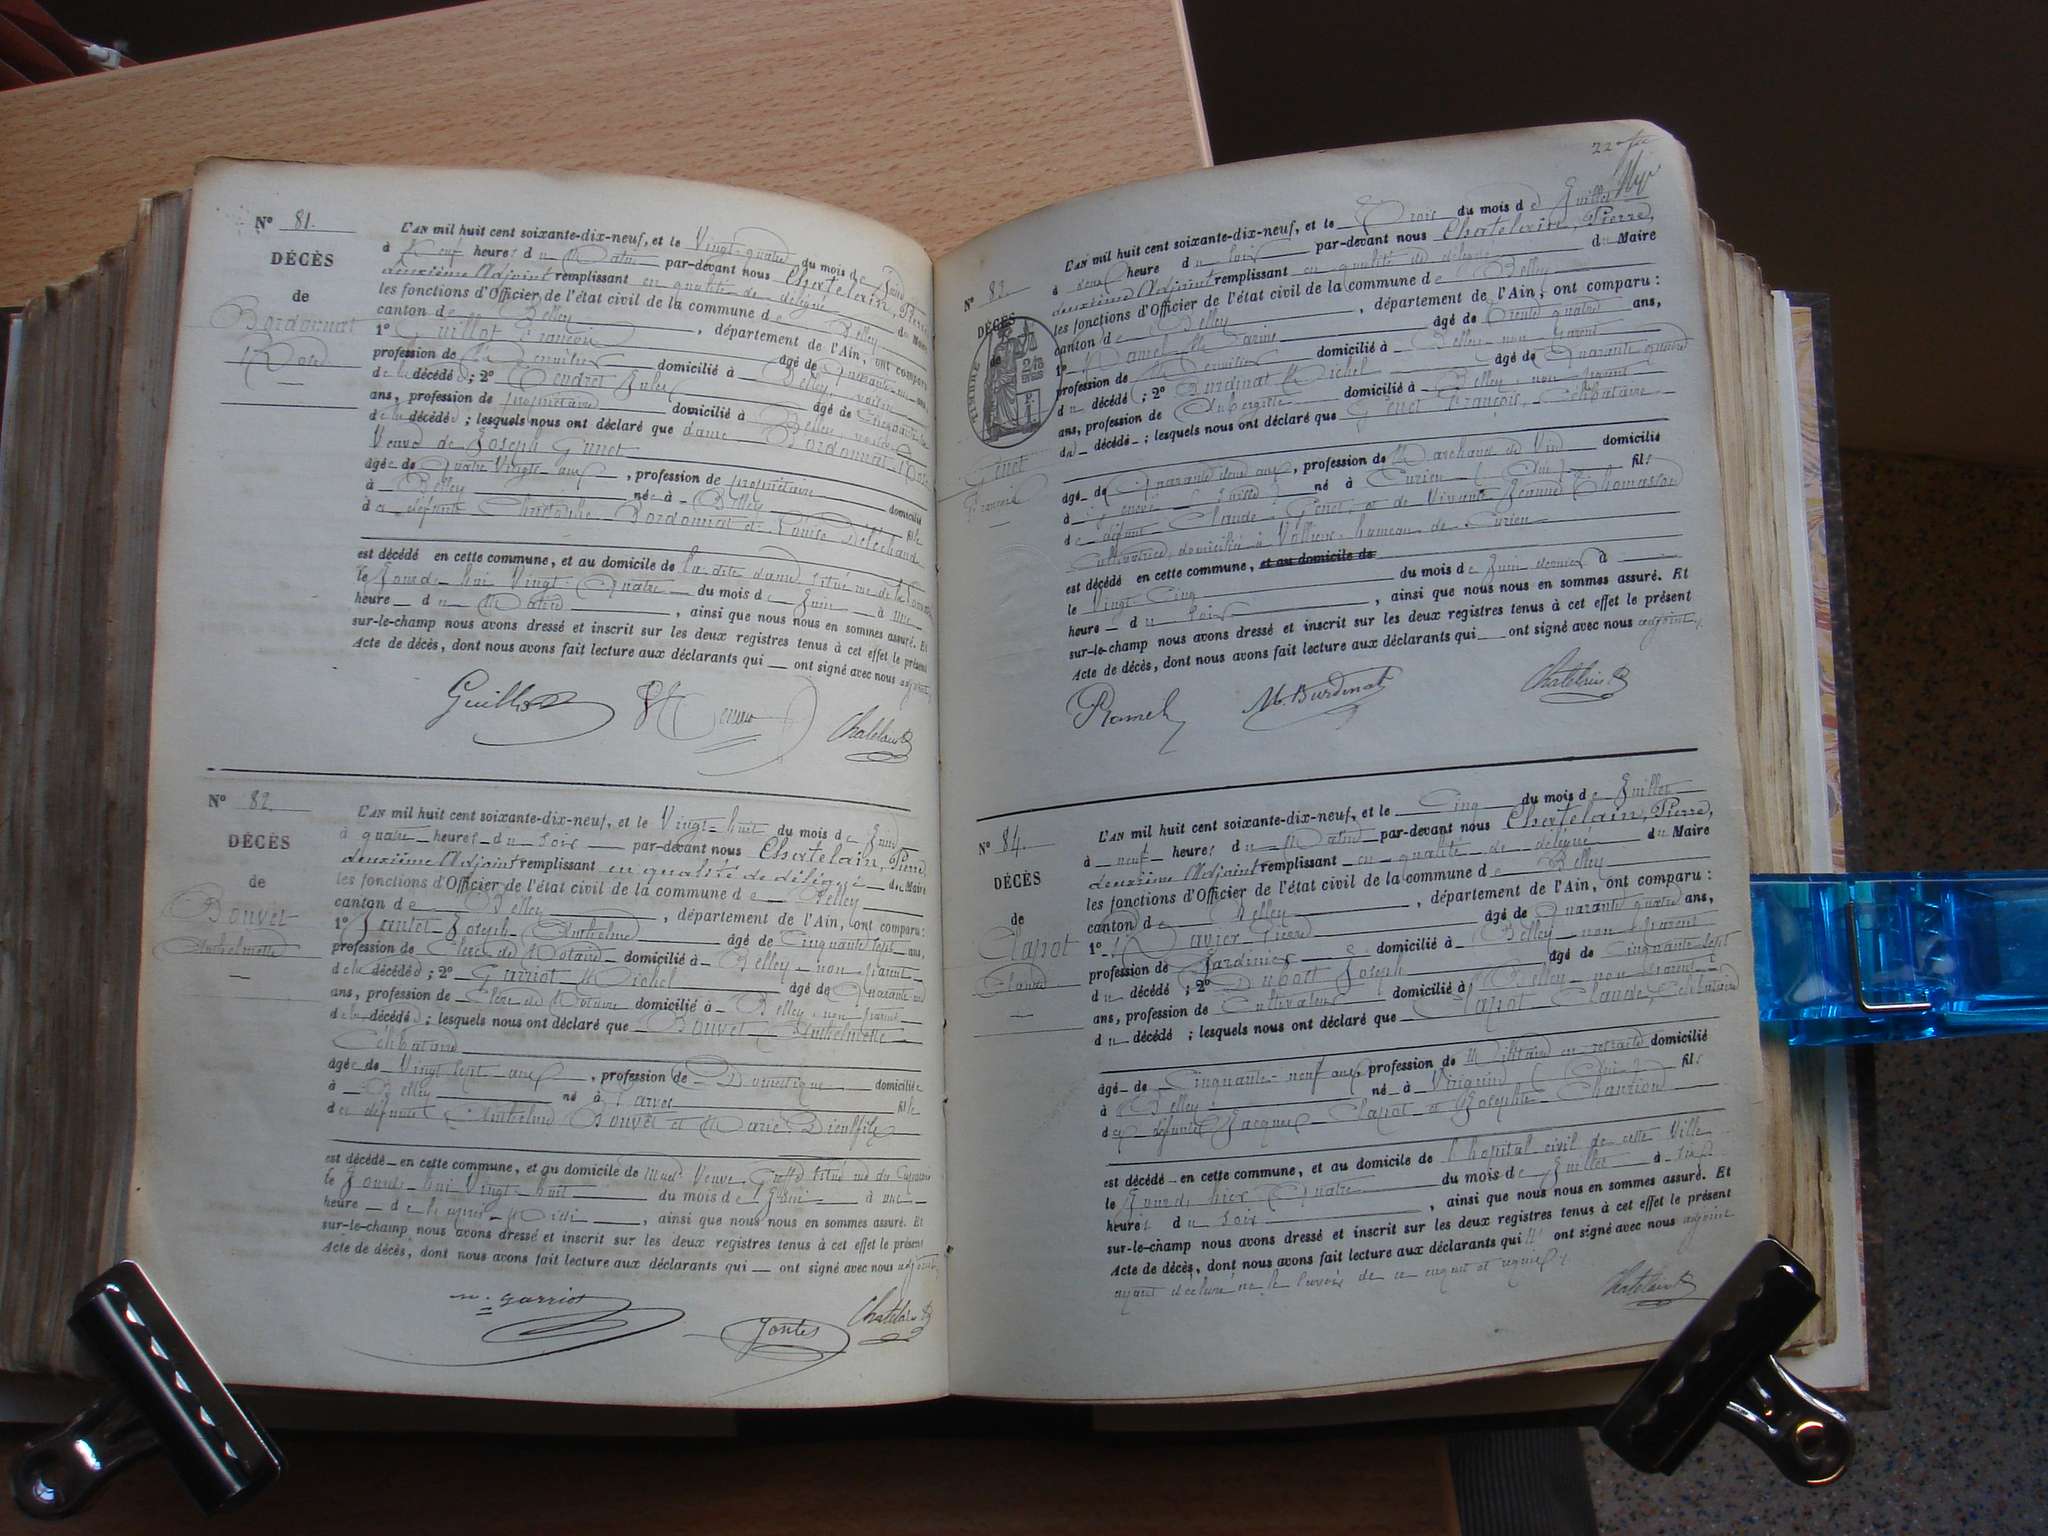 N° 81.
DÉCÈS
de
Bordonnat
Rose
L'AN mil huit cent soixante-dix-neuf, et le Vingt-quatre du mois de Juin
à Neuf heures du Matin par-devant nous Chatelain, Pierre,
deuxième Adjoint remplissant en qualité de délégué du Maire
les fonctions d'Officier de l'état civil de la commune de Belley
canton de Belley, département de l'Ain, ont comparu
1° Guillot François âgé de
profession de domicilié à Belley voisin
de la décédée; 2° Tendret Jules âgé de Cinquante
ans, profession de propriétaire domicilié à Belley, voisin
de la décédée; lesquels nous ont déclaré que dame Bordonnat Rose
Veuve de Joseph
âgée de Quatre Vingts ans, profession de propriétaire domicilié
à Belley née à Belley fille
de défunts Christophe Bordonnat et Louise
est décédé en cette commune, et au domicile de la dite dame situé rue de la
le Jourd'hui Vingt-Quatre du mois de Juin à une
heure du Matin, ainsi que nous nous en sommes assuré. Et
sur-le-champ nous avons dressé et inscrit sur les deux registres tenus à cet effet le présent
Acte de décès, dont nous avons fait lecture aux déclarants qui ont signé avec nous adjoint.
Guillot
Chatelain
N° 82.
DÉCÈS
de
Bouvet
Anthelmette
L'AN mil huit cent soixante-dix-neuf, et le Vingt-huit du mois de Juin
à quatre heures du soir par-devant nous Chatelain, Pierre,
deuxième Adjoint remplissant en qualité de délégué du Maire
les fonctions d'Officier de l'état civil de la commune de Belley
canton de Belley, département de l'Ain, ont comparu:
1° Joseph Anthelme âgé de Cinquante sept ans,
profession de Clerc de Notaire domicilié à Belley non parent
de la décédée; 2° Garriot Michel âgé de Quarante
ans, profession de Clerc de Notaire domicilié à Belley, non parent
de la décédée; lesquels nous ont déclaré que Bouvet Anthelmette
Célibataire
âgée de Vingt sept ans, profession de Domestique domiciliée
à Belley née à Parves fille
de défunts Anthelme Bouvet et Marie
est décédé en cette commune, et au domicile de Mad. Veuve situé rue du
le Jourd'hui Vingt-huit du mois de Juin à une
heure de l'après-Midi, ainsi que nous nous en sommes assuré. Et
sur-le-champ nous avons dressé et inscrit sur les deux registres tenus à cet effet le présent
Acte de décès, dont nous avons fait lecture aux déclarants qui ont signé avec nous adjoint.
m. garriot
Chatelain
N° 83.
DÉCÈS
de
TIMBRE
Genet
François
L'AN mil huit cent soixante-dix-neuf, et le Trois du mois de Juillet
à deux heure du soir par-devant nous Chatelain, Pierre,
deuxième Adjoint remplissant en qualité de délégué du Maire
les fonctions d'Officier de l'état civil de la commune de Belley
canton de Belley, département de l'Ain, ont comparu:
1° Ramel âgé de trente quatre ans,
profession de domicilié à Belley non parent
du décédé; 2° Burdinat Michel âgé de Quarante quatre
ans, profession de Aubergiste domicilié à Belley, non parent
du décédé; lesquels nous ont déclaré que Genet François, Célibataire
âgé de Quarante deux ans, profession de Marchand de Vin domicilié
à Genève (Suisse) né à Curien (Ain) fils
de défunt Claude Genet et de Vivante Jeanne Thomasson
Cultivatrice, domiciliée à hameau de Curien
est décédé en cette commune, et au domicile de
le Vingt-Cinq du mois de Juin dernier à
heure du soir, ainsi que nous nous en sommes assuré. Et
sur-le-champ nous avons dressé et inscrit sur les deux registres tenus à cet effet le présent
Acte de décès, dont nous avons fait lecture aux déclarants qui ont signé avec nous adjoint.
Ramel
M. Burdinat
Chatelain
N° 84.
DÉCÈS
de
Clapot
Claude
L'AN mil huit cent soixante-dix-neuf, et le Cinq du mois de Juillet
à neuf heures du Matin par-devant nous Chatelain, Pierre,
deuxième Adjoint remplissant en qualité de délégué du Maire
les fonctions d'Officier de l'état civil de la commune de Belley
canton de Belley, département de l'Ain, ont comparu:
1° Ravier Pierre âgé de Quarante quatre ans,
profession de Jardinier domicilié à Belley non parent
du décédé; 2° Joseph âgé de Cinquante sept
ans, profession de Cultivateur domicilié à Belley non parent
du décédé; lesquels nous ont déclaré que Clapot Claude, Célibataire
âgé de Cinquante-neuf ans, profession de Militaire en retraite domicilié
à Belley né à Virignin (Ain) fils
des défunts Jacques Clapot et Josephte
est décédé en cette commune, et au domicile de l'hôpital civil de cette Ville
le Jourd'hier Quatre du mois de Juillet à six
heures du soir, ainsi que nous nous en sommes assuré. Et
sur-le-champ nous avons dressé et inscrit sur les deux registres tenus à cet effet le présent
Acte de décès, dont nous avons fait lecture aux déclarants qui ont signé avec nous adjoint
ayant déclaré ne le savoir de ce enquis et requis
Chatelain